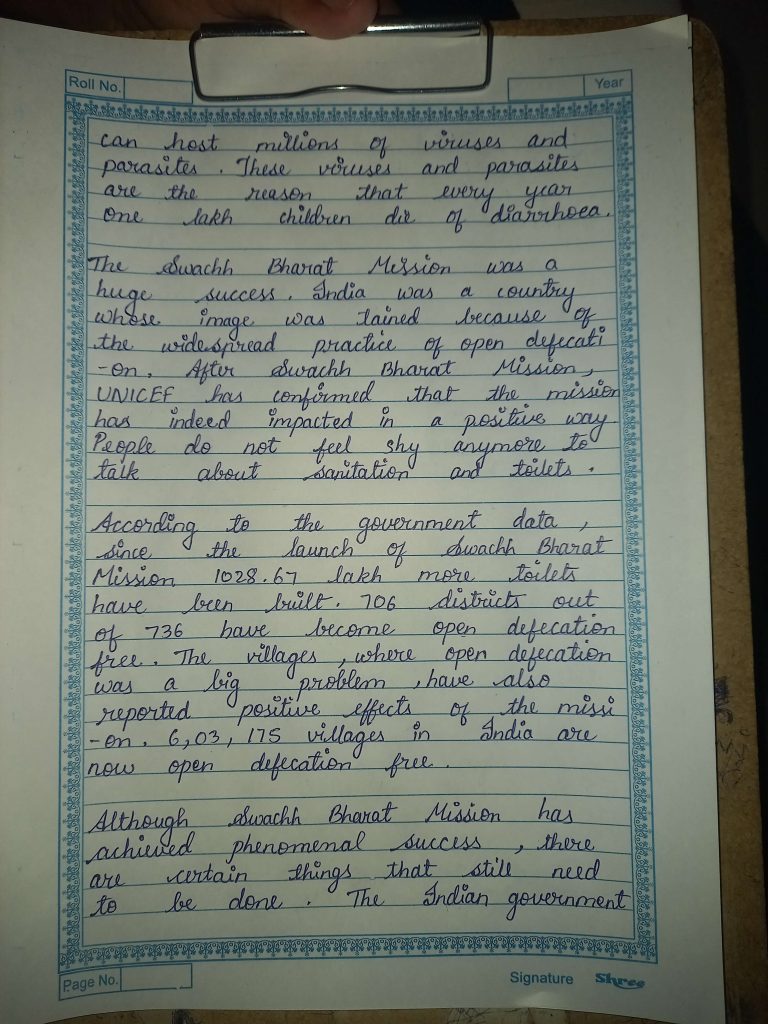 Roll No.
Year
can host millions of viruses and
parasites. These viruses and parasites
are the reason that every year
one lakh children die of diarrhoea.
The Swachh Bharat Mission was a
huge success. India was a country
whose image was tained because of
the widespread practice of open defecati
-on. After Swachh Bharat Mission,
UNICEF has confirmed that the mission
has indeed impacted in a positive way.
People do not feel shy anymore to
talk about sanitation and toilets.
According to the government data,
since the launch of Swachh Bharat
Mission 1028.67 lakh more toilets
have been built. 706 districts out
of 736 have become open defecation
free. The villages, where open defecation
was a big problem, have also
reported positive effects of the missi
-on. 6,03,175 villages in India are
now open defecation free.
Although Swachh Bharat Mission has
achieved phenomenal success, there
are certain things that still need
to be done. The Indian government
Page No.
Signature Shree